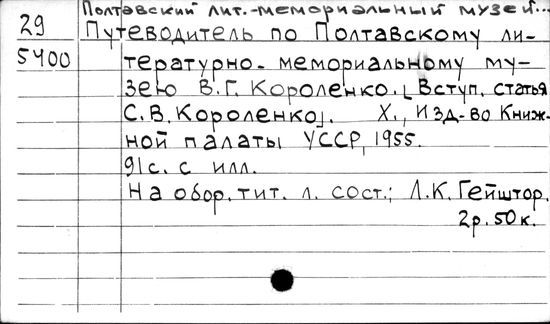 Полтавский лит.-мемориальный музей...
29 Путеводитель по Полтавскому ли-
5400 тературно-мемориальному му-
зею В.Г. Короленко. [Вступ. статья
С.В. Короленко]. Х., Изд-во Книж-
ной палаты УССР, 1955.
91 с. с илл.
На обор. тит. л. сост.: Л.К. Гейштор.
2р. 50к.